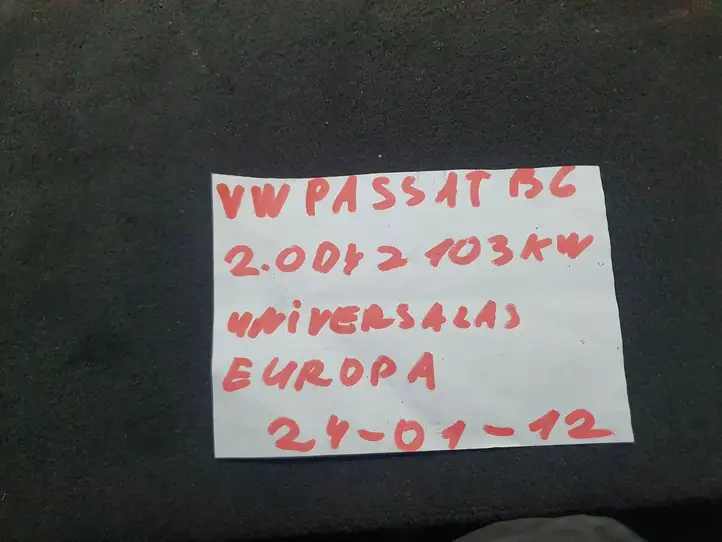 VW PASSAT B6
2.0DYZ 103KW
UNIVERSALAS
EUROPA
24-01-12